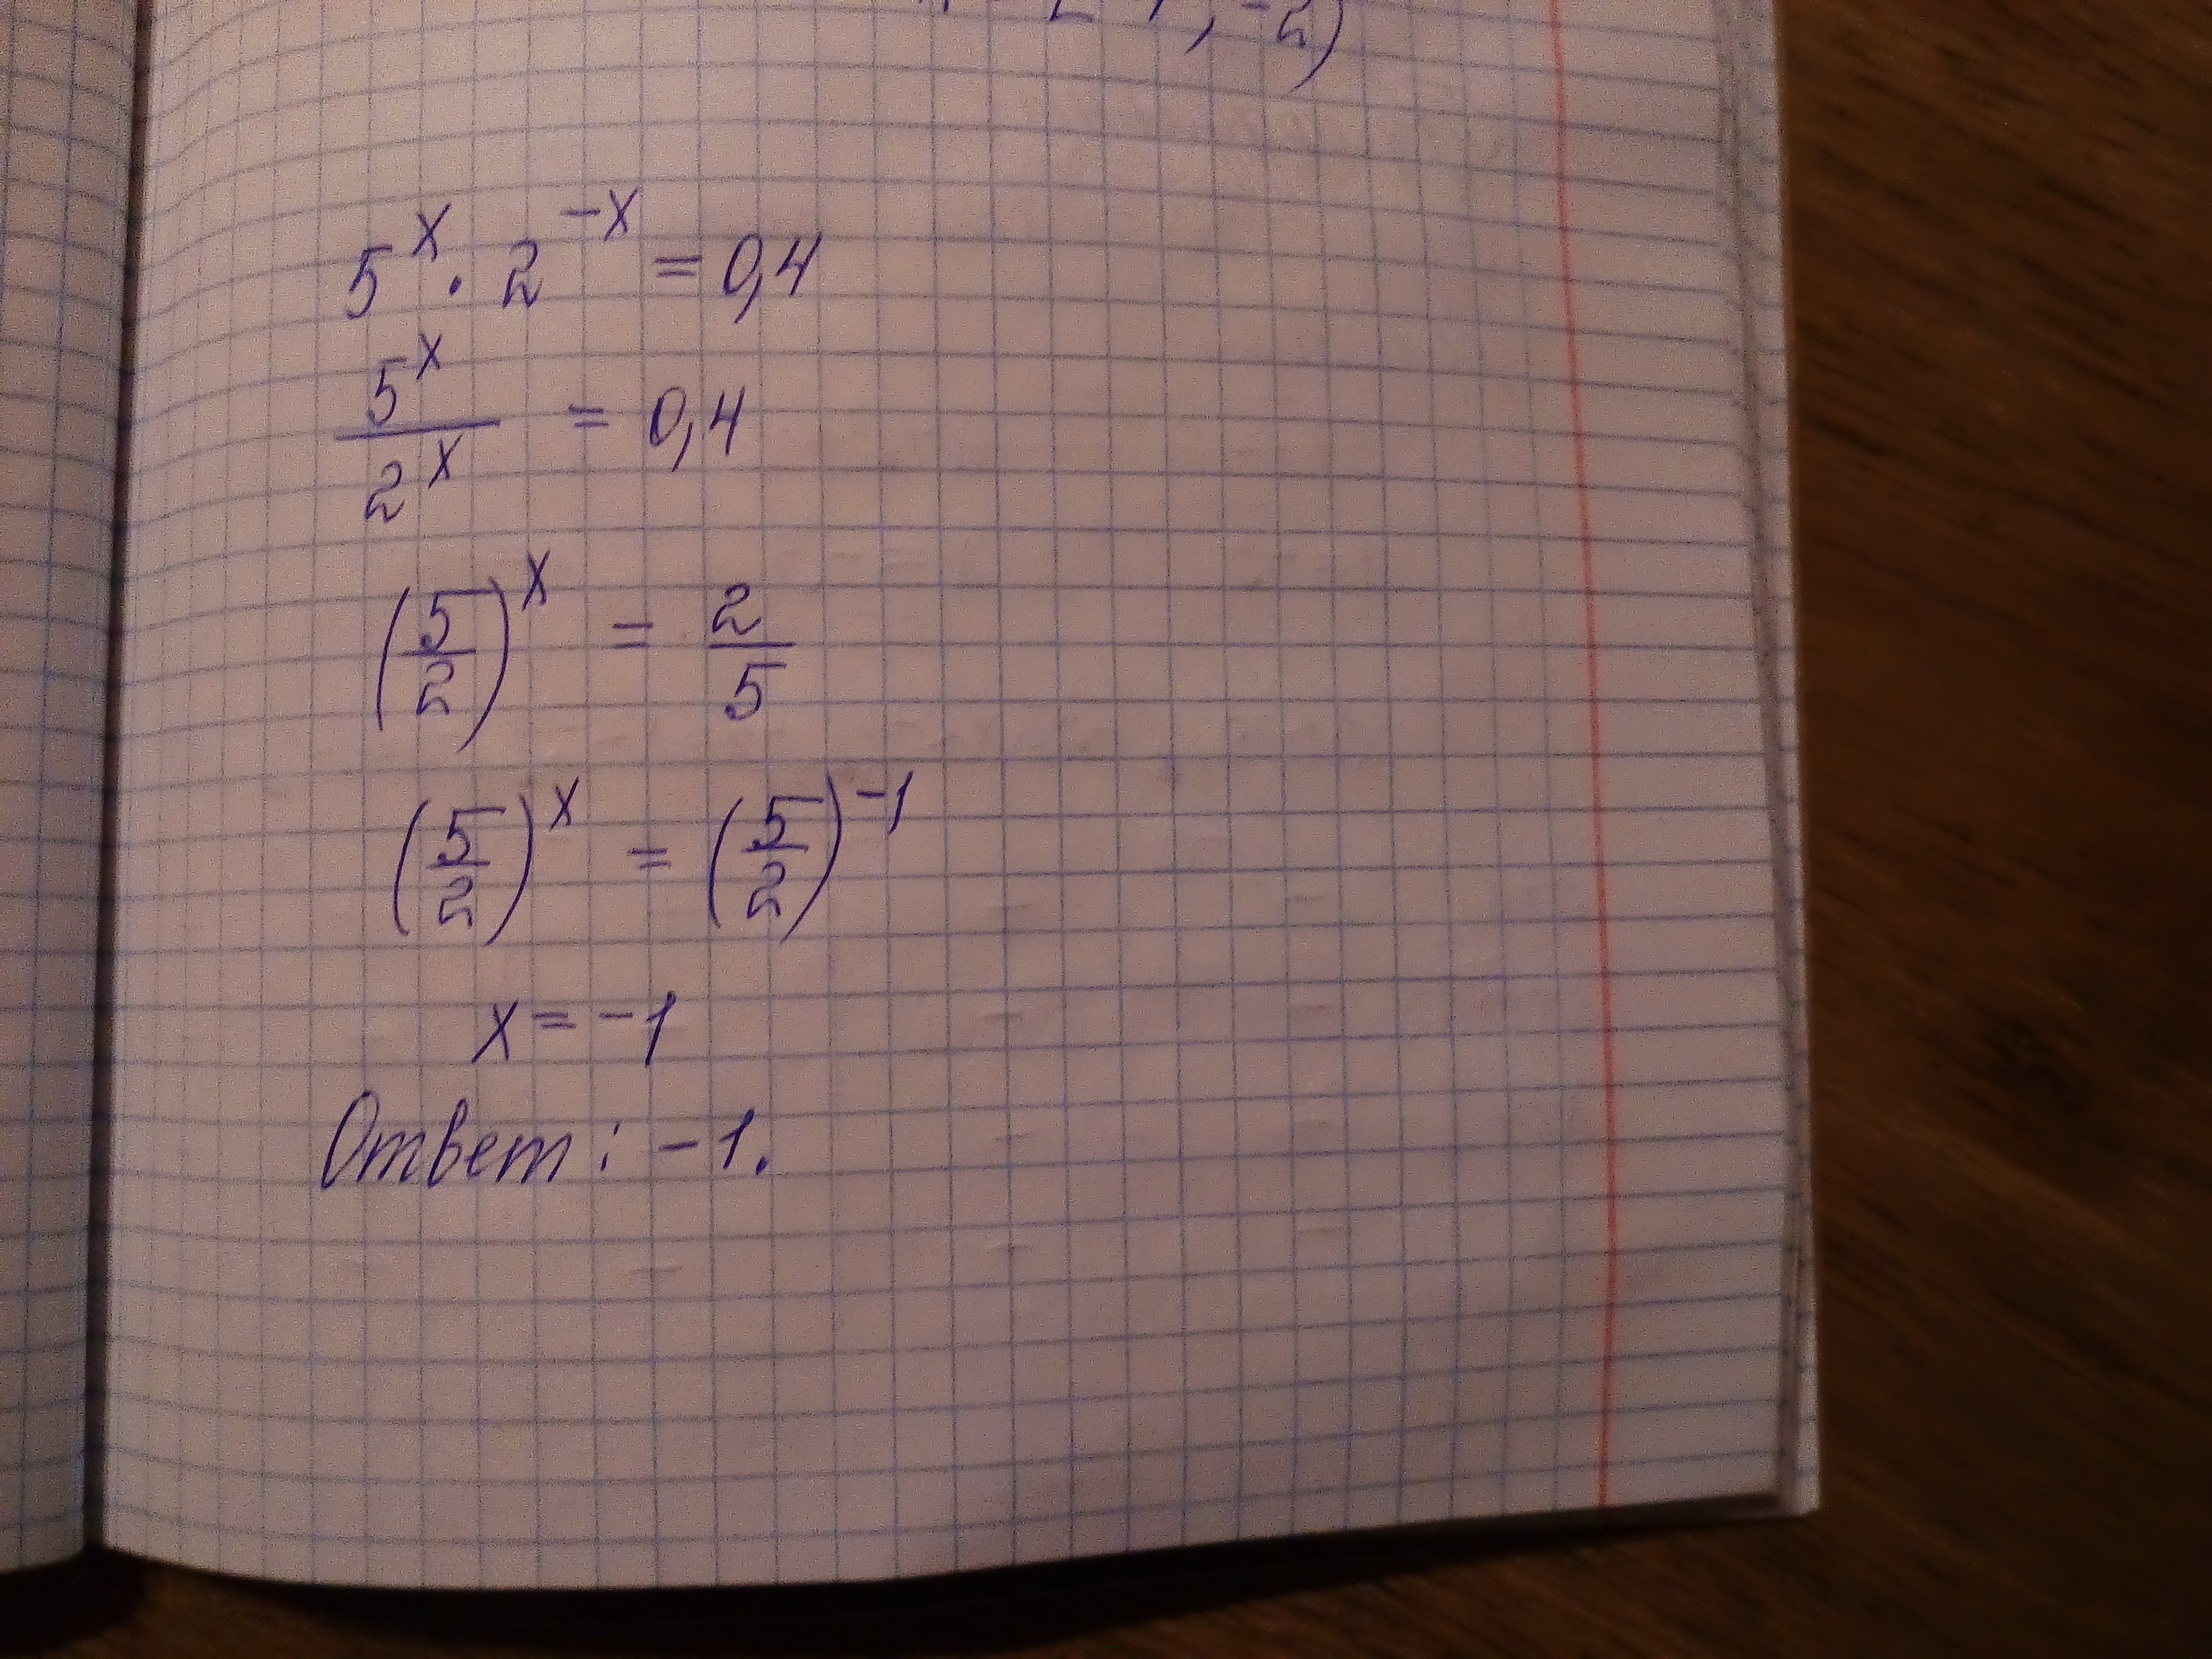 5^x · 2^-x = 0,4
5^x / 2^x = 0,4
(5/2)^x = 2/5
(5/2)^x = (5/2)^-1
x = -1
Ответ: -1.